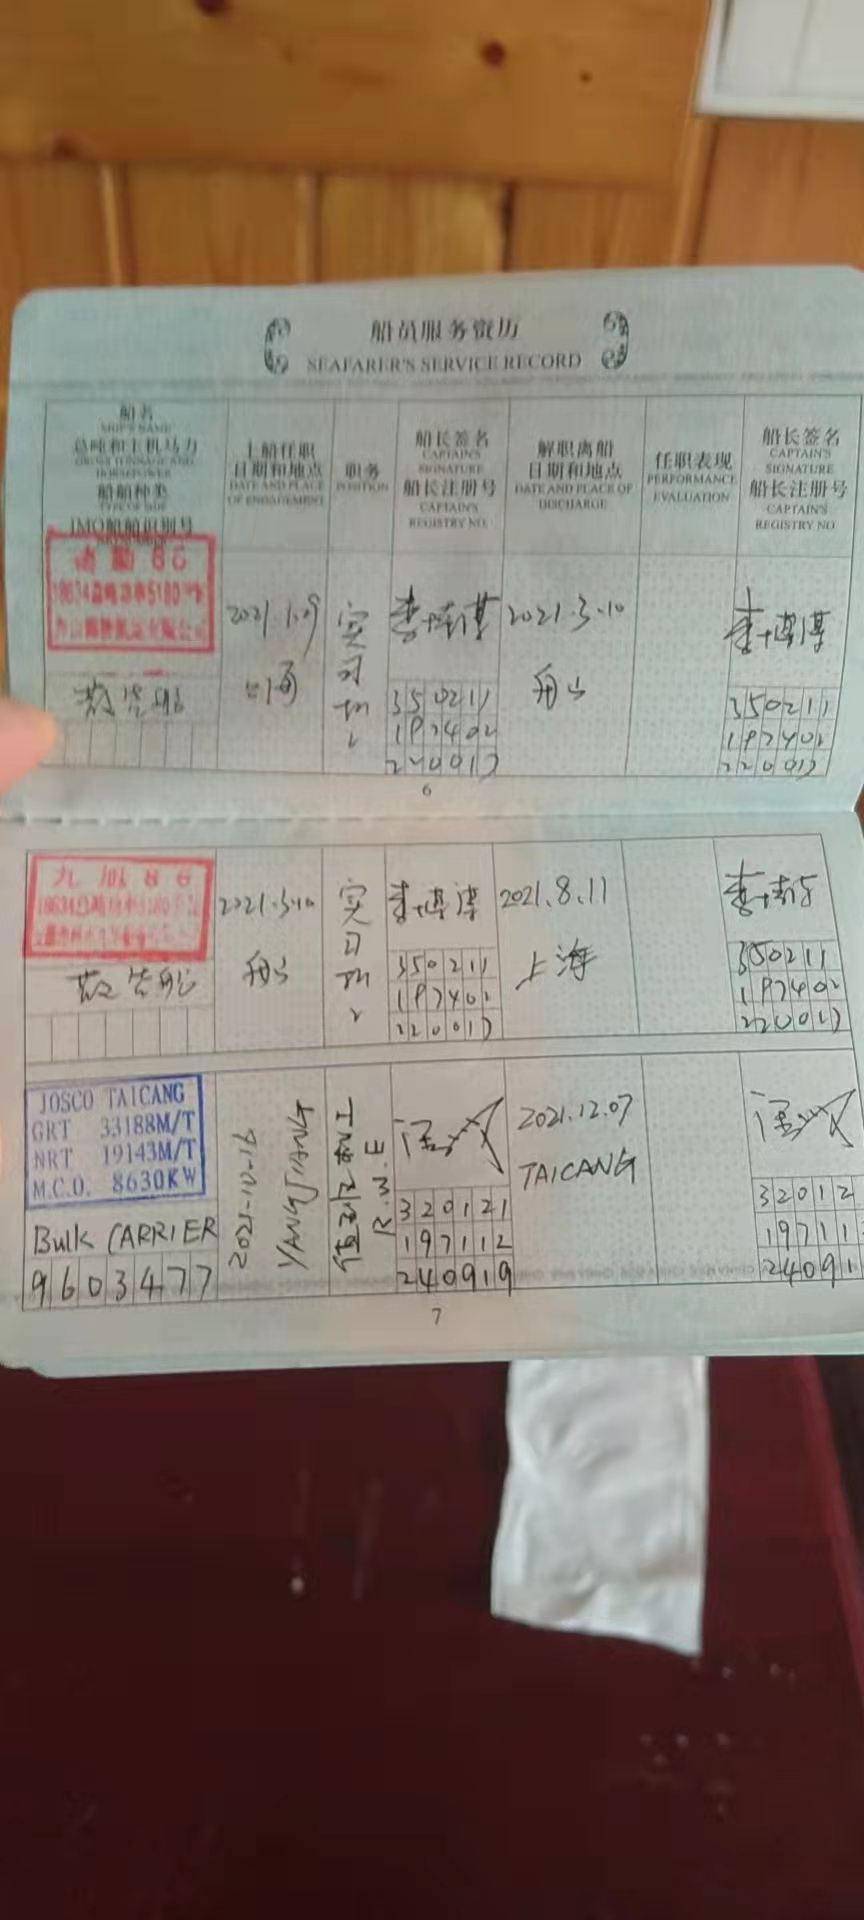 船员服务资历
SEAFARER'S SERVICE RECORD
船名
SHIP'S NAME
总吨和主机马力
GROSS TONNAGE AND
HORSEPOWER
船舶种类
TYPE OF SHIP
IMO船舶识别号
上船任职
日期和地点
DATE AND PLACE
OF ENGAGEMENT
职务
POSITION
船长签名
CAPTAIN'S
SIGNATURE
船长注册号
CAPTAIN'S
REGISTRY NO.
解职离船
日期和地点
DATE AND PLACE OF
DISCHARGE
任职表现
PERFORMANCE
EVALUATION
船长签名
CAPTAIN'S
SIGNATURE
船长注册号
CAPTAIN'S
REGISTRY NO
86
散货船
2021.1.29
实习
350211
197402
220017
2021.3.10
舟山
350211
197402
220017
6
86
散货船
2021.3.10
舟山
实习
350211
197402
220017
2021.8.11
上海
350211
197402
220017
JOSCO TAICANG
GRT 33188M/T
NRT 19143M/T
M.C.O. 8630KW
Bulk CARRIER
9603477
2021-10-16
YANGJIANG
值班机工
R.W.E
320121
197112
240919
2021.12.07
TAICANG
32012
19711
24091
7